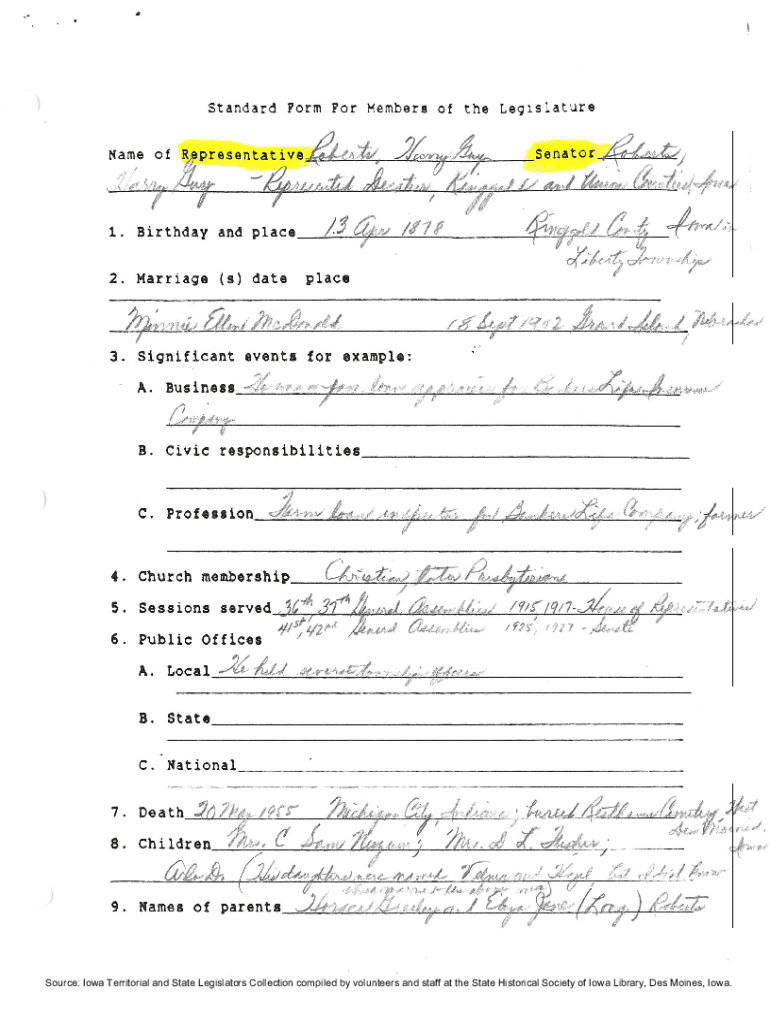 Standard Form For Members of the Legislature
Name of Representative Roberts, Harry Guy Senator Roberts,
Harry Guy - Represented Decatur, Ringgold and Union Counties, Iowa
1. Birthday and place 13 Apr 1878 Ringgold County Iowa in
Liberty Township
2. Marriage (s) date place
Minnie Ellen McDonald 18 Sept 1902 Grand Island, Nebraska
3. Significant events for example:
A. Business He was a farm loan appraiser for Bankers Life Insurance
Company
B. Civic responsibilities
C. Profession Farm loan inspector for Bankers Life Company; farmer
4. Church membership Christian, later Presbyterian
5. Sessions served 36th, 37th General Assemblies 1915, 1917 - House of Representatives
41st, 42nd General Assemblies 1925, 1927 - Senate
6. Public Offices
A. Local He held several township offices
B. State
C. National
7. Death 20 May 1955 Michigan City, Indiana; buried Cemetery, West
Des Moines,
8. Children Mrs. C Sam ; Mrs. D L. ; Iowa
Arlo D. (His daughters were named Velma and Hazel, but I didn't know
which married the above men)
9. Names of parents Horace Greeley and Eliza Jane (Long) Roberts
Source: Iowa Territorial and State Legislators Collection compiled by volunteers and staff at the State Historical Society of Iowa Library, Des Moines, Iowa.